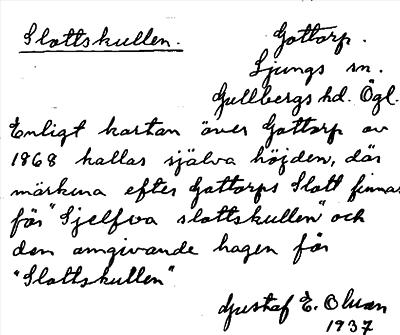 Slottskullen.
Gottorp.
Ljungs sn.
Gullbergs hd. Ögl.
Enligt kartan över Gottorp av
1868 kallas själva höjden, där
märkena efter Gottorps Slott finnas
för "Sjelfva slottskullen" och
den omgivande hagen för
"Slottskullen"
Gustaf E. Olson
1937